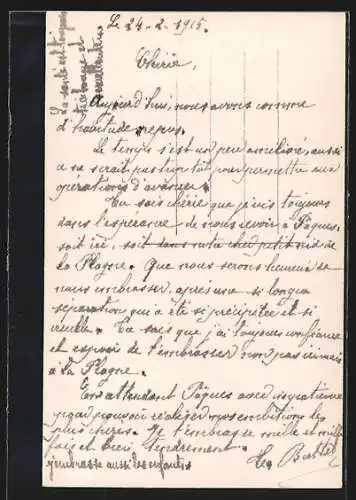 Le 24-2-1915.
La santé est toujours
très bonne et
excellente.
Chérie,
Aujourd'hui, nous avons comme
d'habitude repos.
Le temps s'est un peu amélioré, aussi
ce ne serait pas trop tôt pour permettre aux
opérations d'avancer.
Tu sais chérie que je vis toujours
dans l'espérance de nous revoir à Pâques,
soit ici, soit dans notre cher petit nid de
La Plagne. Que nous serons heureux de
nous embrasser, après une si longue
séparation qui a été si précipitée et si
cruelle. Tu sais que j'ai toujours confiance
et espoir de t'embrasser mon
à La Plagne.
En attendant Pâques avec impatience
pour pouvoir réaliser nos ambitions les
plus chères. Je t'embrasse mille et mille
fois et bien tendrement.
j'embrasse aussi les enfants